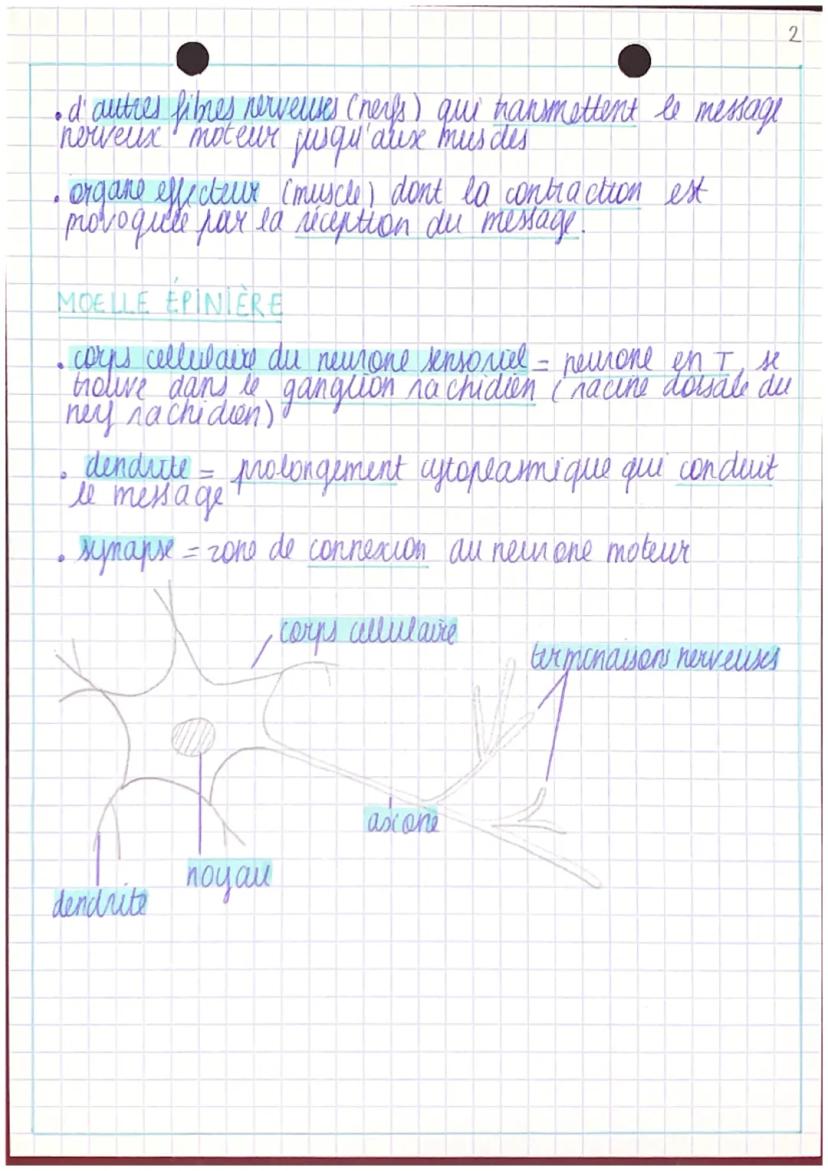 2
. d'autres fibres nerveuses (nerfs) qui transmettent le message
nerveux moteur jusqu'aux muscles
. organe effecteur (muscle) dont la contraction est
provoquée par la réception du message.
MOELLE ÉPINIÈRE
. corps cellulaire du neurone sensoriel = neurone en T, se
trouve dans le ganglion rachidien (racine dorsale du
nerf rachidien)
. dendrite = prolongement cytoplasmique qui conduit
le message
. synapse = zone de connexion au neurone moteur
corps cellulaire
terminaisons nerveuses
axone
noyau
dendrite